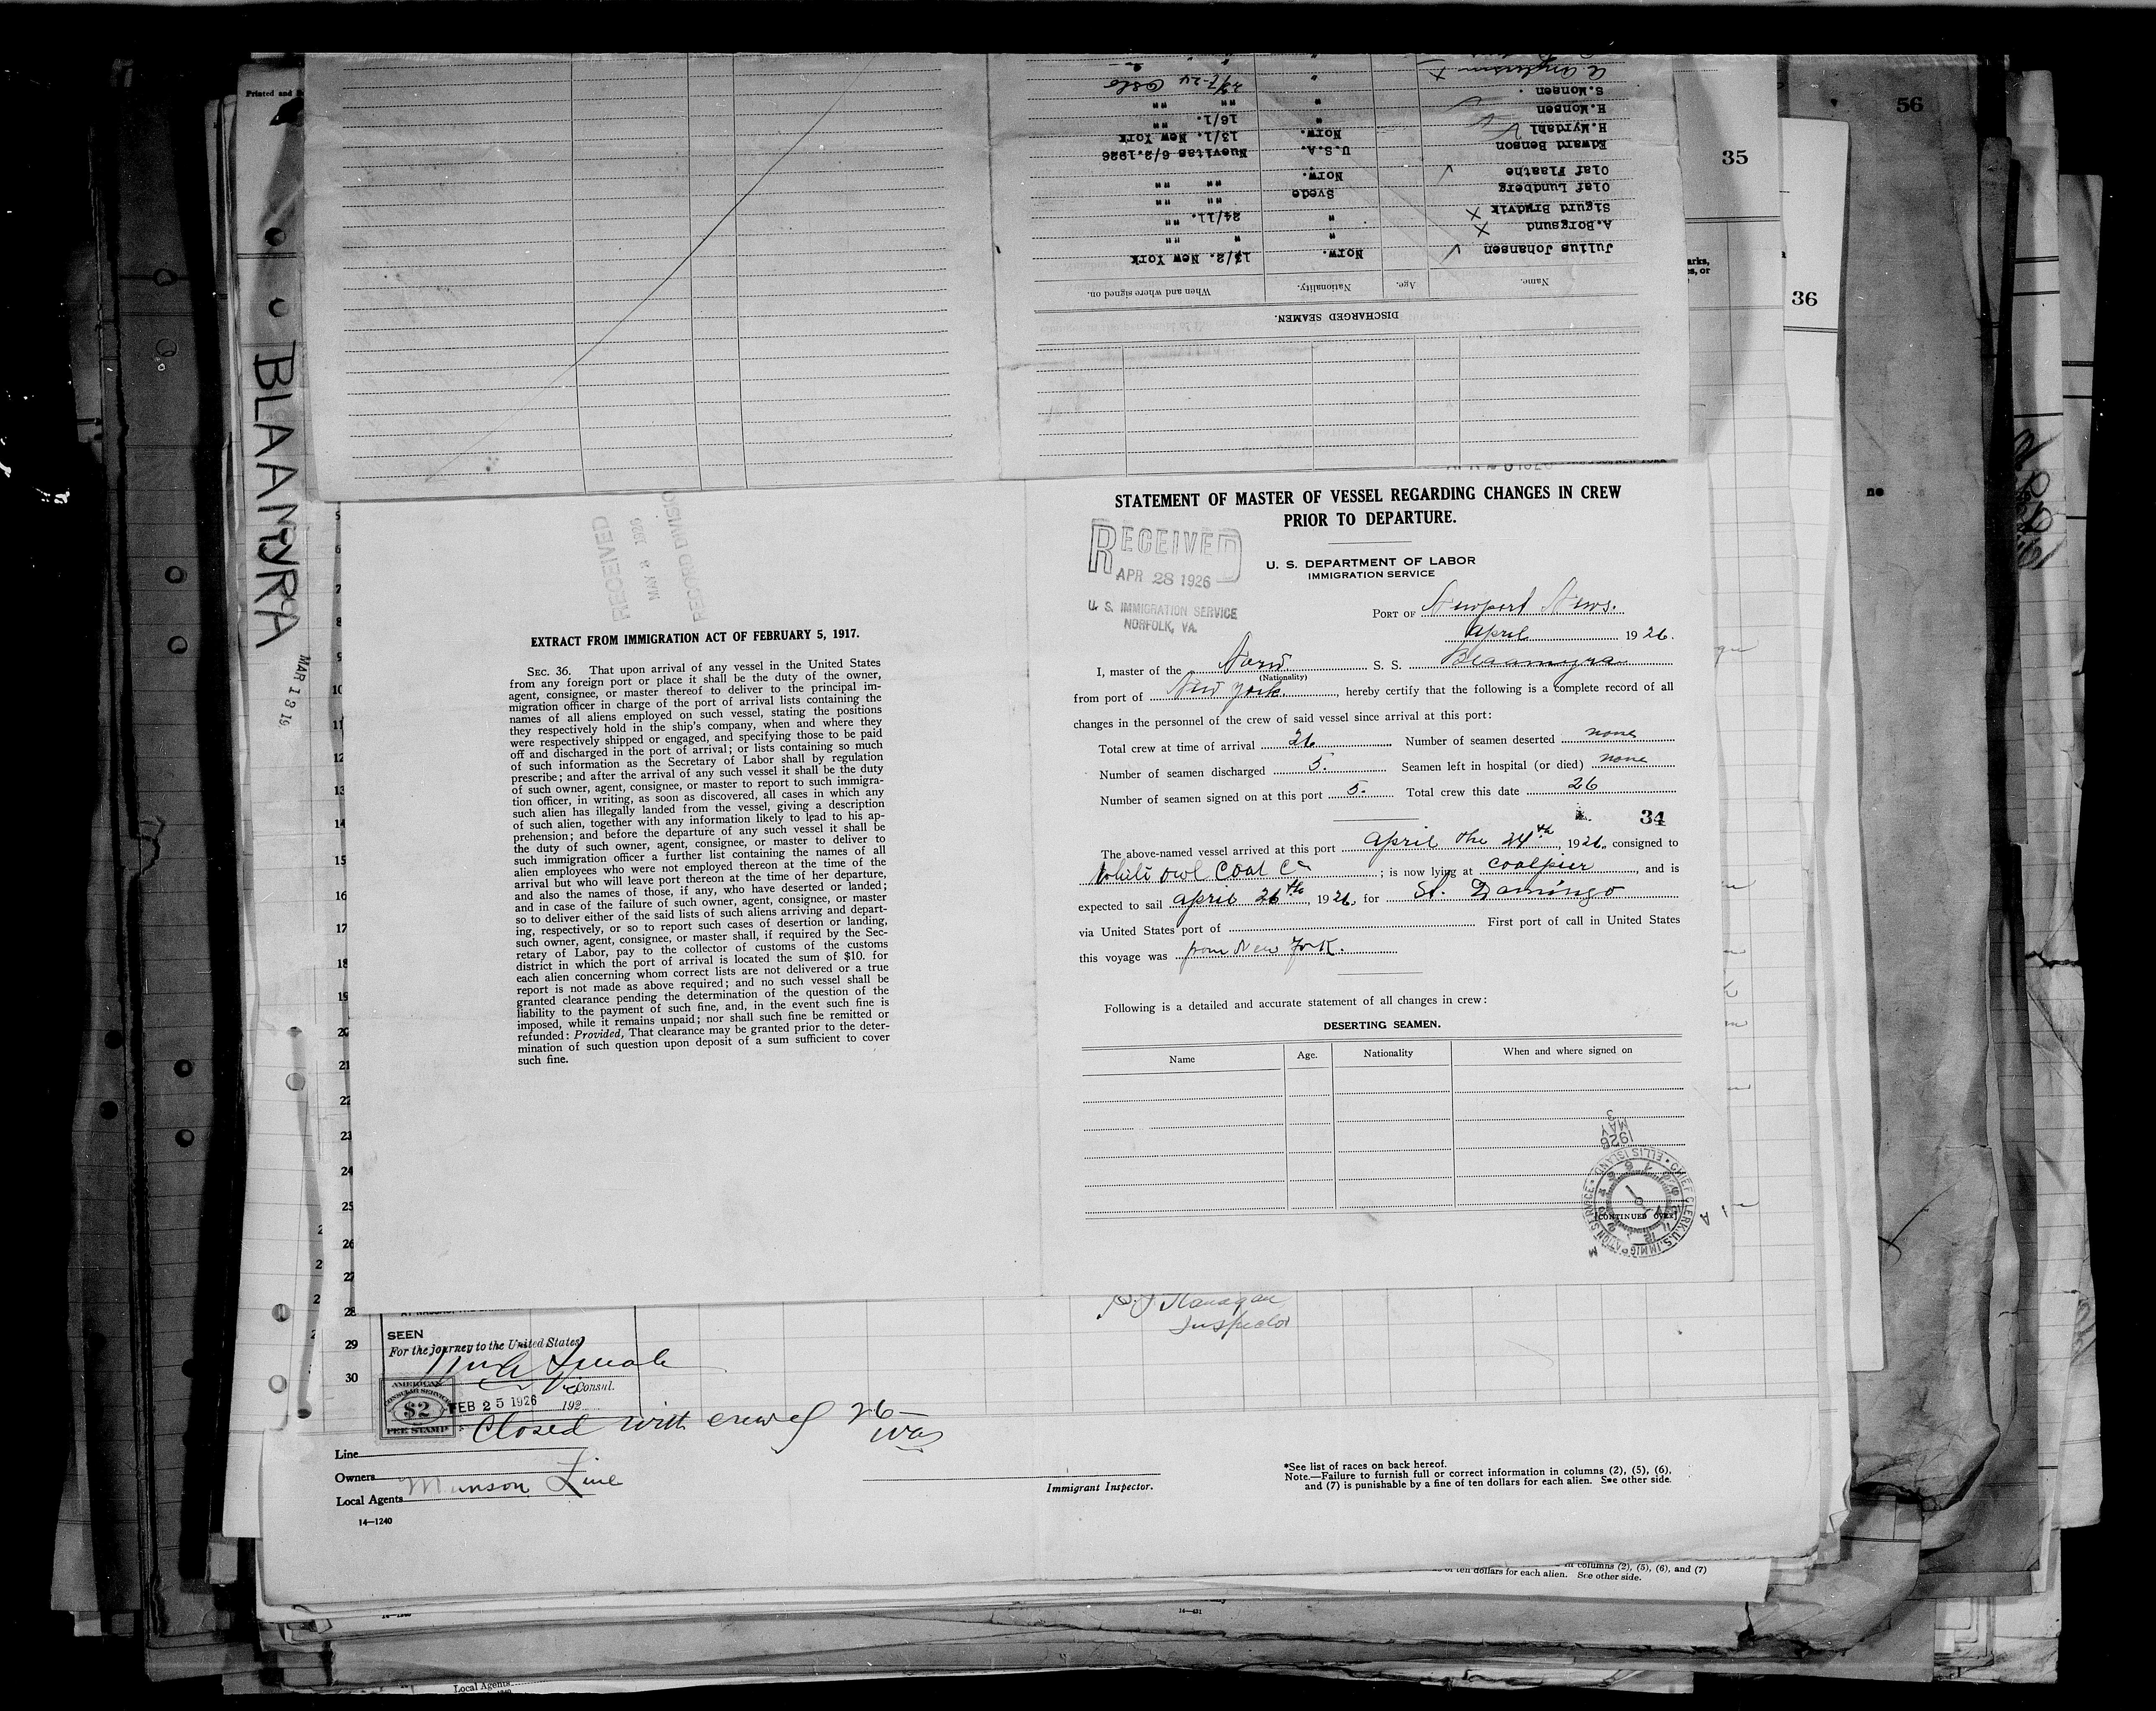 Printed and
56
35
36
BLAAMYRA
MAR 13 19
S.Monsen
H.Monsen
16/1.
H.Myrdahl Norw. 13/1. New York
Edward Benson U.S.A. Nuevitas 6/2.1926
Olaf Flaathe Norw.
Olaf Lundberg Svede
Sigurd Brudvik " 24/11. ""
A.Borgsund " " ""
Julius Johansen Norw. 13/2. New York
Name. Age. Nationality. When and where signed on.
DISCHARGED SEAMEN.
RECEIVED
MAY 8 1926
RECORD DIVISION
EXTRACT FROM IMMIGRATION ACT OF FEBRUARY 5, 1917.
SEC. 36. That upon arrival of any vessel in the United States
from any foreign port or place it shall be the duty of the owner,
agent, consignee, or master thereof to deliver to the principal im-
migration officer in charge of the port of arrival lists containing the
names of all aliens employed on such vessel, stating the positions
they respectively hold in the ship's company, when and where they
were respectively shipped or engaged, and specifying those to be paid
off and discharged in the port of arrival; or lists containing so much
of such information as the Secretary of Labor shall by regulation
prescribe; and after the arrival of any such vessel it shall be the duty
of such owner, agent, consignee, or master to report to such immigra-
tion officer, in writing, as soon as discovered, all cases in which any
such alien has illegally landed from the vessel, giving a description
of such alien, together with any information likely to lead to his ap-
prehension; and before the departure of any such vessel it shall be
the duty of such owner, agent, consignee, or master to deliver to
such immigration officer a further list containing the names of all
alien employees who were not employed thereon at the time of the
arrival but who will leave port thereon at the time of her departure,
and also the names of those, if any, who have deserted or landed;
and in case of the failure of such owner, agent, consignee, or master
so to deliver either of the said lists of such aliens arriving and depart-
ing, respectively, or so to report such cases of desertion or landing,
such owner, agent, consignee, or master shall, if required by the Sec-
retary of Labor, pay to the collector of customs of the customs
district in which the port of arrival is located the sum of $10. for
each alien concerning whom correct lists are not delivered or a true
report is not made as above required; and no such vessel shall be
granted clearance pending the determination of the question of the
liability to the payment of such fine, and, in the event such fine is
imposed, while it remains unpaid; nor shall such fine be remitted or
refunded: Provided, That clearance may be granted prior to the deter-
mination of such question upon deposit of a sum sufficient to cover
such fine.
STATEMENT OF MASTER OF VESSEL REGARDING CHANGES IN CREW
PRIOR TO DEPARTURE.
RECEIVED
APR 28 1926
U. S. IMMIGRATION SERVICE
NORFOLK, VA.
U. S. DEPARTMENT OF LABOR
IMMIGRATION SERVICE
PORT OF Newport News.
April 1926.
I, master of the Norw. S. S. Blaamyra
(Nationality)
from port of New York, hereby certify that the following is a complete record of all
changes in the personnel of the crew of said vessel since arrival at this port:
Total crew at time of arrival 26 Number of seamen deserted none
Number of seamen discharged 5. Seamen left in hospital (or died) none
Number of seamen signed on at this port 5. Total crew this date 26
34
The above-named vessel arrived at this port april the 24th, 1926, consigned to
White Owl Coal Co ; is now lying at coalpier, and is
expected to sail april 26th, 1926, for St. Domingo
via United States port of First port of call in United States
this voyage was from New York.
Following is a detailed and accurate statement of all changes in crew:
DESERTING SEAMEN.
Name Age. Nationality When and where signed on
1926
MAY
3
CHIEF CLERK, U.S. IMMIGRATION SERVICE • ELLIS ISLAND •
[CONTINUED OVER]
5
6
7
8
9
10
11
12
13
14
15
16
17
18
19
20
21
22
23
24
25
26
27
28
29
30
Inspector
SEEN
For the journey to the United States
Consul.
AMERICAN
CONSULAR SERVICE
$2
FEE STAMP
FEB 25 1926 192
Closed with crew of 26
Line
Owners
Local Agents Munson Line
14—1240
Immigrant Inspector.
*See list of races on back hereof.
Note.—Failure to furnish full or correct information in columns (2), (5), (6),
and (7) is punishable by a fine of ten dollars for each alien. See other side.
in columns (2), (5), (6), and (7)
of ten dollars for each alien. See other side.
Local Agents